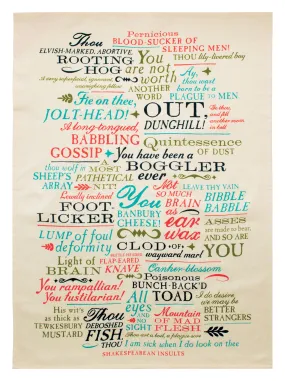 Pernicious
Thou BLOOD-SUCKER OF
SLEEPING MEN!
ELVISH-MARKED, ABORTIVE,
ROOTING You THOU lily-livered boy
HOG are not
A very superficial, ignorant, worth
unweighing fellow ANOTHER
WORD
Ay, thou
wast born to be a
PLAGUE TO MEN
Fie on thee,
JOLT-HEAD!
OUT,
DUNGHILL!
A long-tongued,
BABBLING
GOSSIP
Quintessence
OF DUST
You have been a
BOGGLER
thou wolf in
SHEEP'S
ARRAY
A MOST
PATHETICAL
NIT!
ever
Not
SO MUCH
BRAIN
as
ear
wax
LEAVE THY VAIN
BIBBLE
BABBLE
FOOT-
LICKER
You
BANBURY
CHEESE!
ASSES
are made to bear,
AND SO ARE
YOU
LUMP of foul
deformity
CLOD of
wayward marl!
Light of
BRAIN
FLAP-EARED
KNAVE
Canker-blossom
You rampallian!
You fustilarian!
Poisonous
BUNCH-BACK'D
TOAD
His wit's
as thick as
TEWKESBURY
MUSTARD
Thou
DEBOSHED
FISH,
THOU
All
eyes
AND
NO
SIGHT
Mountain
OF MAD
FLESH
I do desire
we may be
BETTER
STRANGERS
Thou art a boil, a plague sore
I am sick when I do look on thee
SHAKESPEAREAN INSULTS